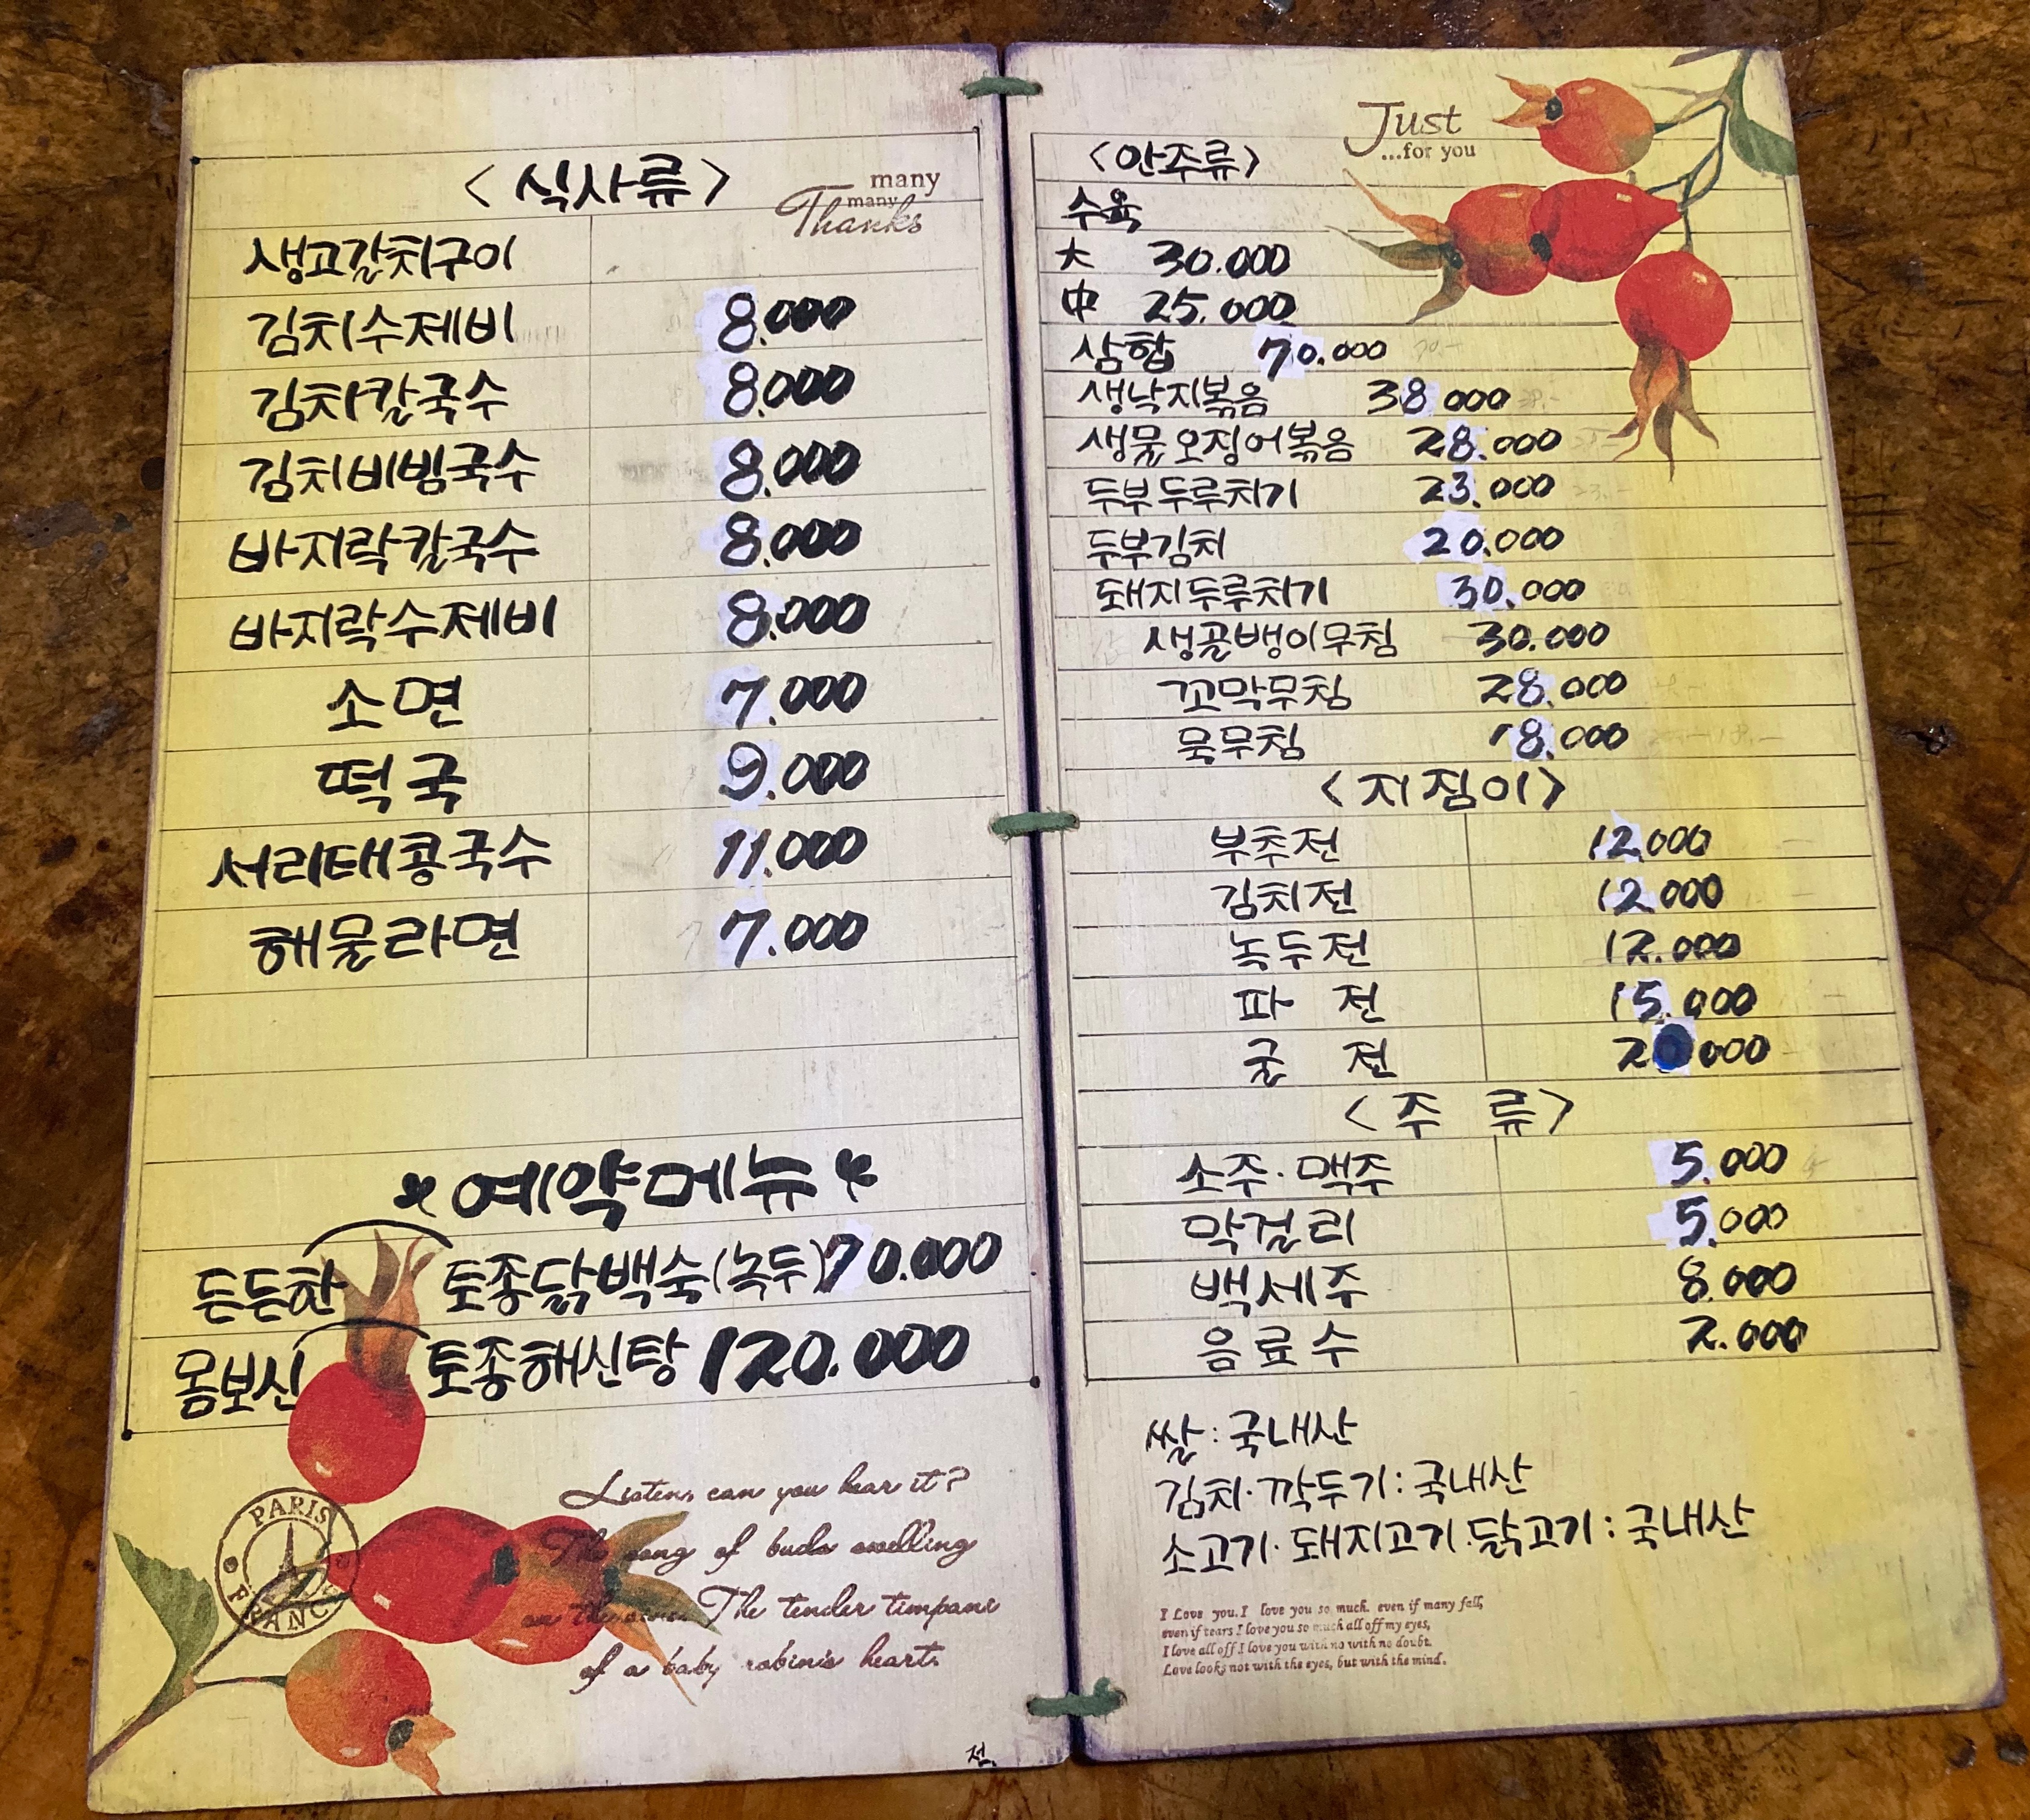 <식사류>
many
many
Thanks
생고갈치구이
김치수제비 8.000
김치칼국수 8.000
김치비빔국수 8.000
바지락칼국수 8.000
바지락수제비 8.000
소면 7.000
떡국 9.000
서리태콩국수 11.000
해물라면 7.000
*예약메뉴*
든든한 토종닭백숙(녹두) 70.000
몸보신 토종해신탕 120.000
PARIS
FRANCE
Listen, can you hear it?
The song of buds swelling
The tender timpani
of a baby robin's heart.
전.
Just
...for you
<안주류>
수육
大 30.000
中 25.000
삼합 70.000
생낙지볶음 38 000
생물오징어볶음 28.000
두부두루치기 23.000
두부김치 20.000
돼지두루치기 30.000
생골뱅이무침 30.000
꼬막무침 28.000
묵무침 18.000
<지짐이>
부추전 12.000
김치전 12.000
녹두전 12.000
파 전 15.000
굴 전 20000
<주 류>
소주·맥주 5.000
막걸리 5.000
백세주 8.000
음료수 2.000
쌀:국내산
김치·깍두기:국내산
소고기·돼지고기·닭고기:국내산
I Love you. I love you so much. even if many fall,
even if tears I love you so much all off my eyes,
I love all off I love you with no with no doubt.
Love looks not with the eyes, but with the mind.